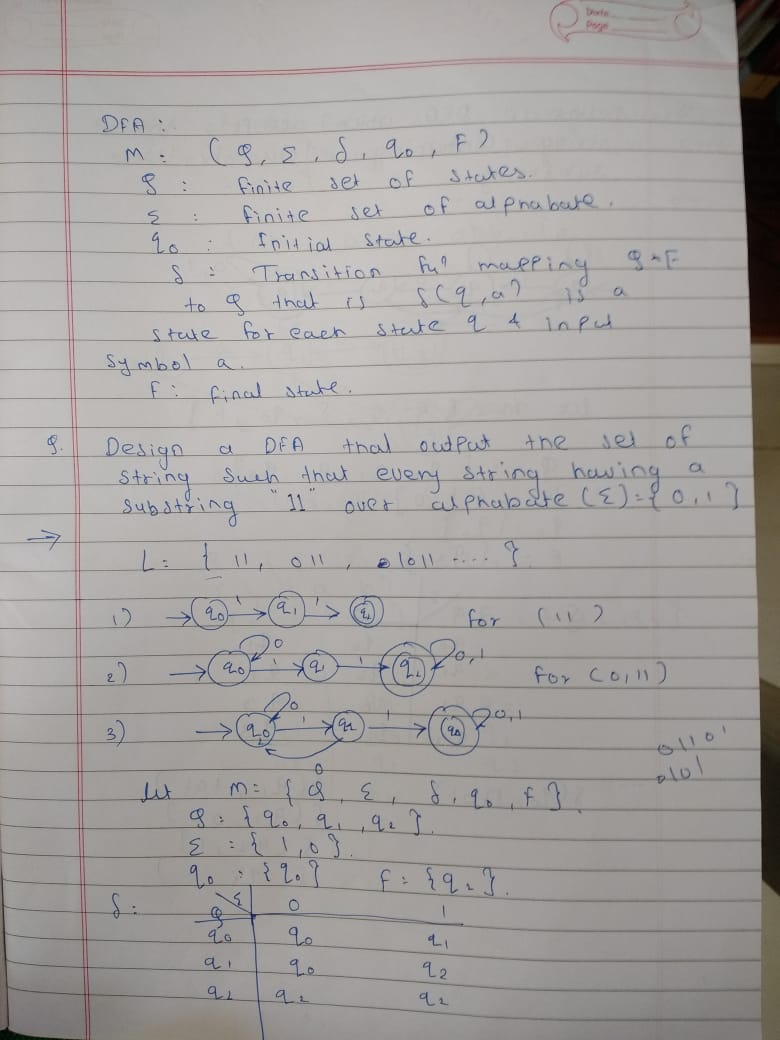 Date
Page
DFA :
M : (Q, Σ, δ, q0, F)
Q : finite set of states.
Σ : finite set of alphabate.
q0 : Initial state.
δ : Transition fun mapping Q×F
to Q that is δ(q,a) is a
state for each state q & input
Symbol a.
F : final state.
Q. Design a DFA that output the set of
string such that every string having a
substring "11" over alphabate (Σ)={0,1}
→ L = { 11, 011, 01011 .... }
1) → q0 1 → q1 1 → q2 for (11)
2) → q0 0 1 → q1 1 → q2 0,1 for (0,11)
3) → q0 0 1 → q1 1 → q2 0,1
0
01101
0101
Let M = { Q, Σ, δ, q0, F }.
Q = { q0, q1, q2 }.
Σ = { 1, 0 }.
q0 = { q0 } F = { q2 }.
δ: Q Σ 0 1
q0 q0 q1
q1 q0 q2
q2 q2 q2